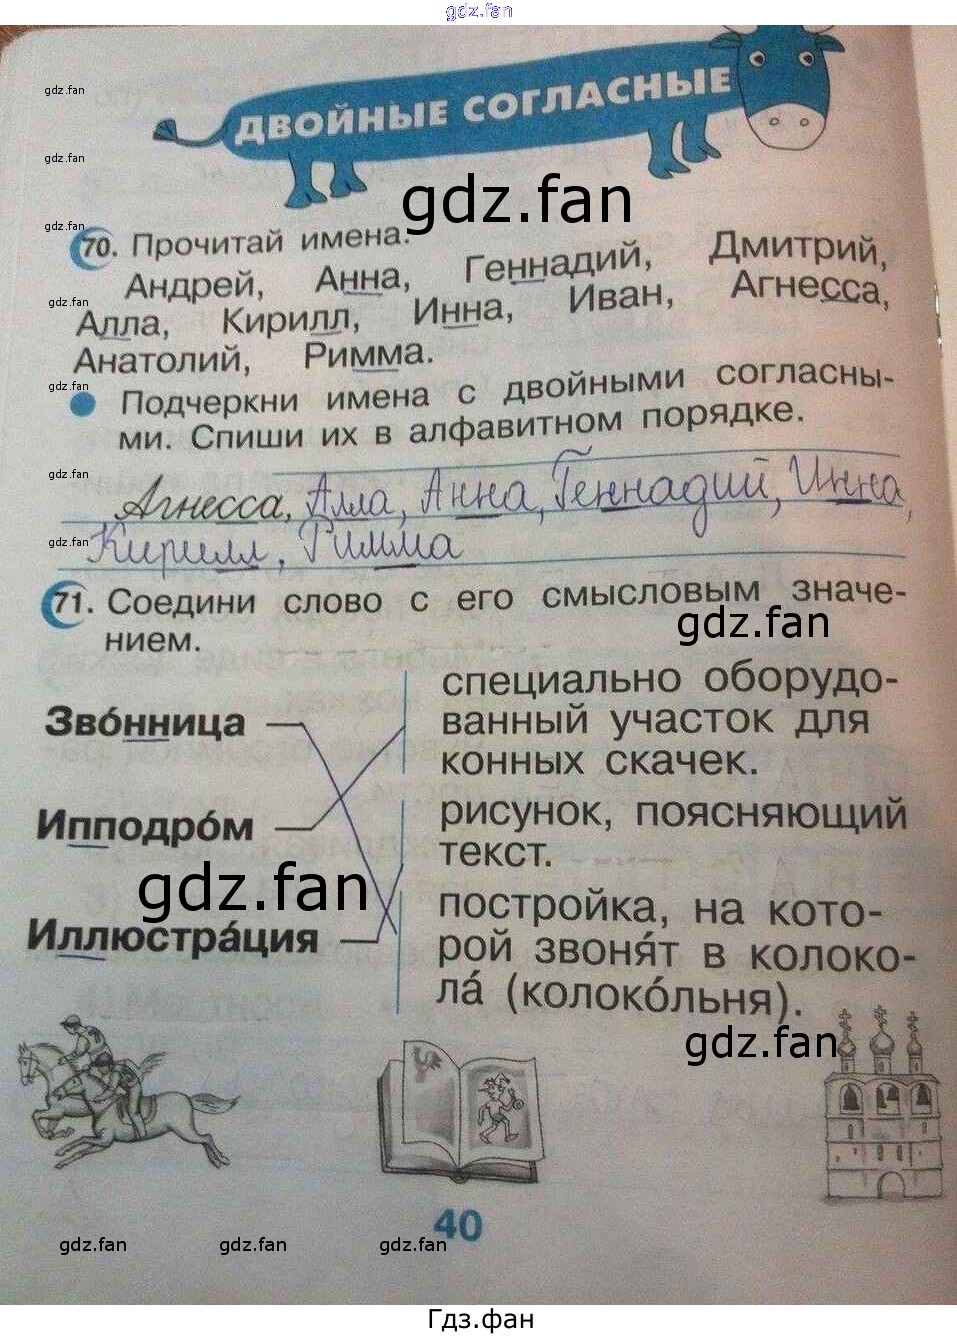 gdz.fan
gdz.fan
ДВОЙНЫЕ СОГЛАСНЫЕ
gdz.fan
gdz.fan
gdz.fan
70. Прочитай имена.
Андрей, Анна, Геннадий, Дмитрий,
gdz.fan
Алла, Кирилл, Инна, Иван, Агнесса,
Анатолий, Римма.
gdz.fan
Подчеркни имена с двойными согласны-
ми. Спиши их в алфавитном порядке.
gdz.fan
Агнесса, Алла, Анна, Геннадий, Инна,
gdz.fan
Кирилл, Римма
71. Соедини слово с его смысловым значе-
нием.
gdz.fan
Зво́нница
специально оборудо-
ванный участок для
конных скачек.
Ипподро́м
рисунок, поясняющий
текст.
gdz.fan
Иллюстра́ция
постройка, на кото-
рой звоня́т в колоко-
ла́ (колоко́льня).
gdz.fan
40
gdz.fan gdz.fan gdz.fan
Гдз.фан